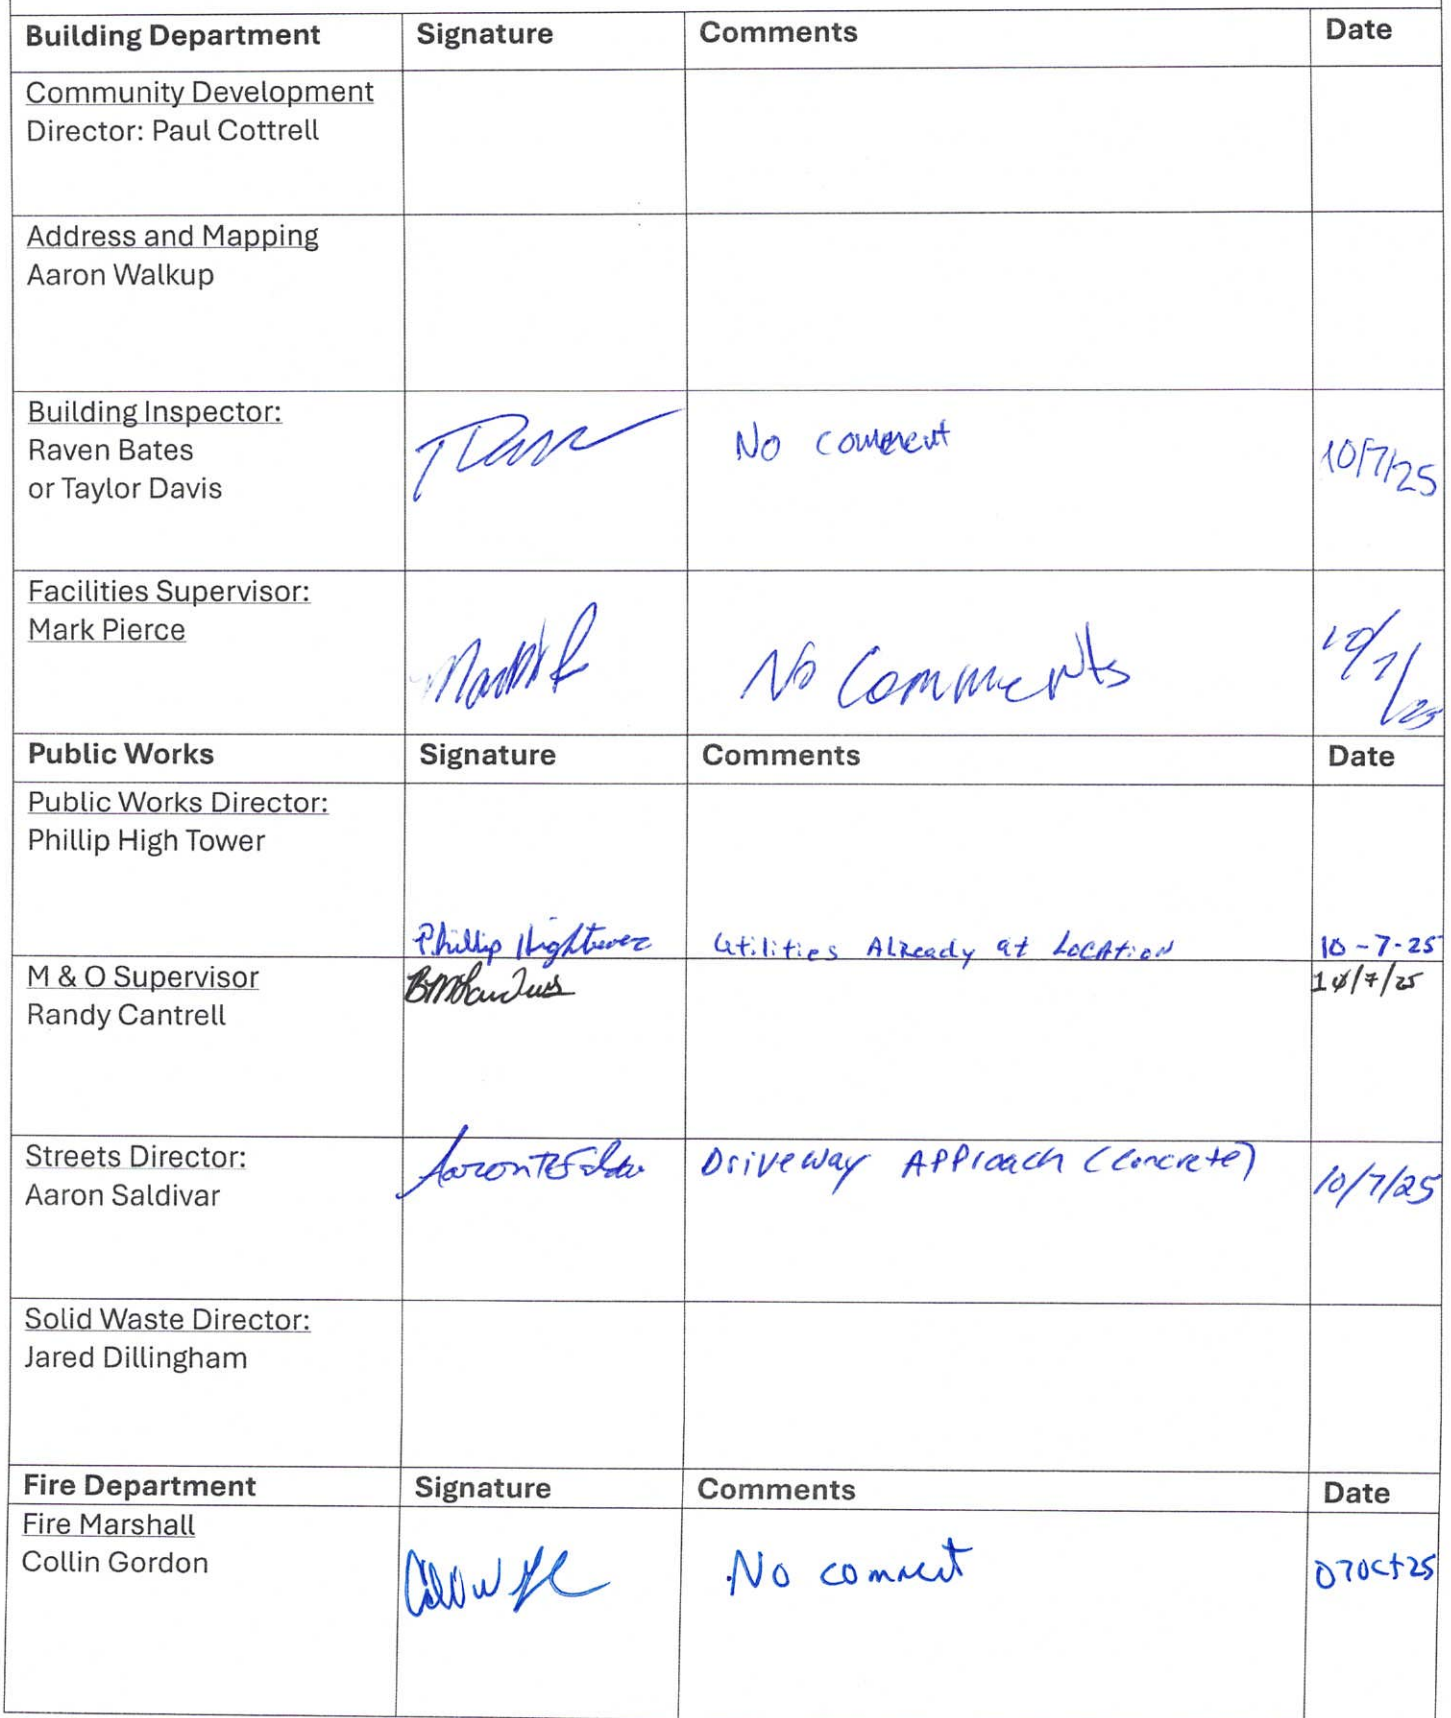 Building Department Signature Comments Date
Community Development
Director: Paul Cottrell
Address and Mapping
Aaron Walkup
Building Inspector:
Raven Bates
or Taylor Davis
No comment
10/7/25
Facilities Supervisor:
Mark Pierce
No Comments
10/7/25
Public Works Signature Comments Date
Public Works Director:
Phillip High Tower
Phillip Hightower Utilities Already at Location 10-7-25
M & O Supervisor
Randy Cantrell
10/7/25
Streets Director:
Aaron Saldivar
Driveway Approach (Concrete) 10/7/25
Solid Waste Director:
Jared Dillingham
Fire Department Signature Comments Date
Fire Marshall
Collin Gordon
No comment 07Oct25